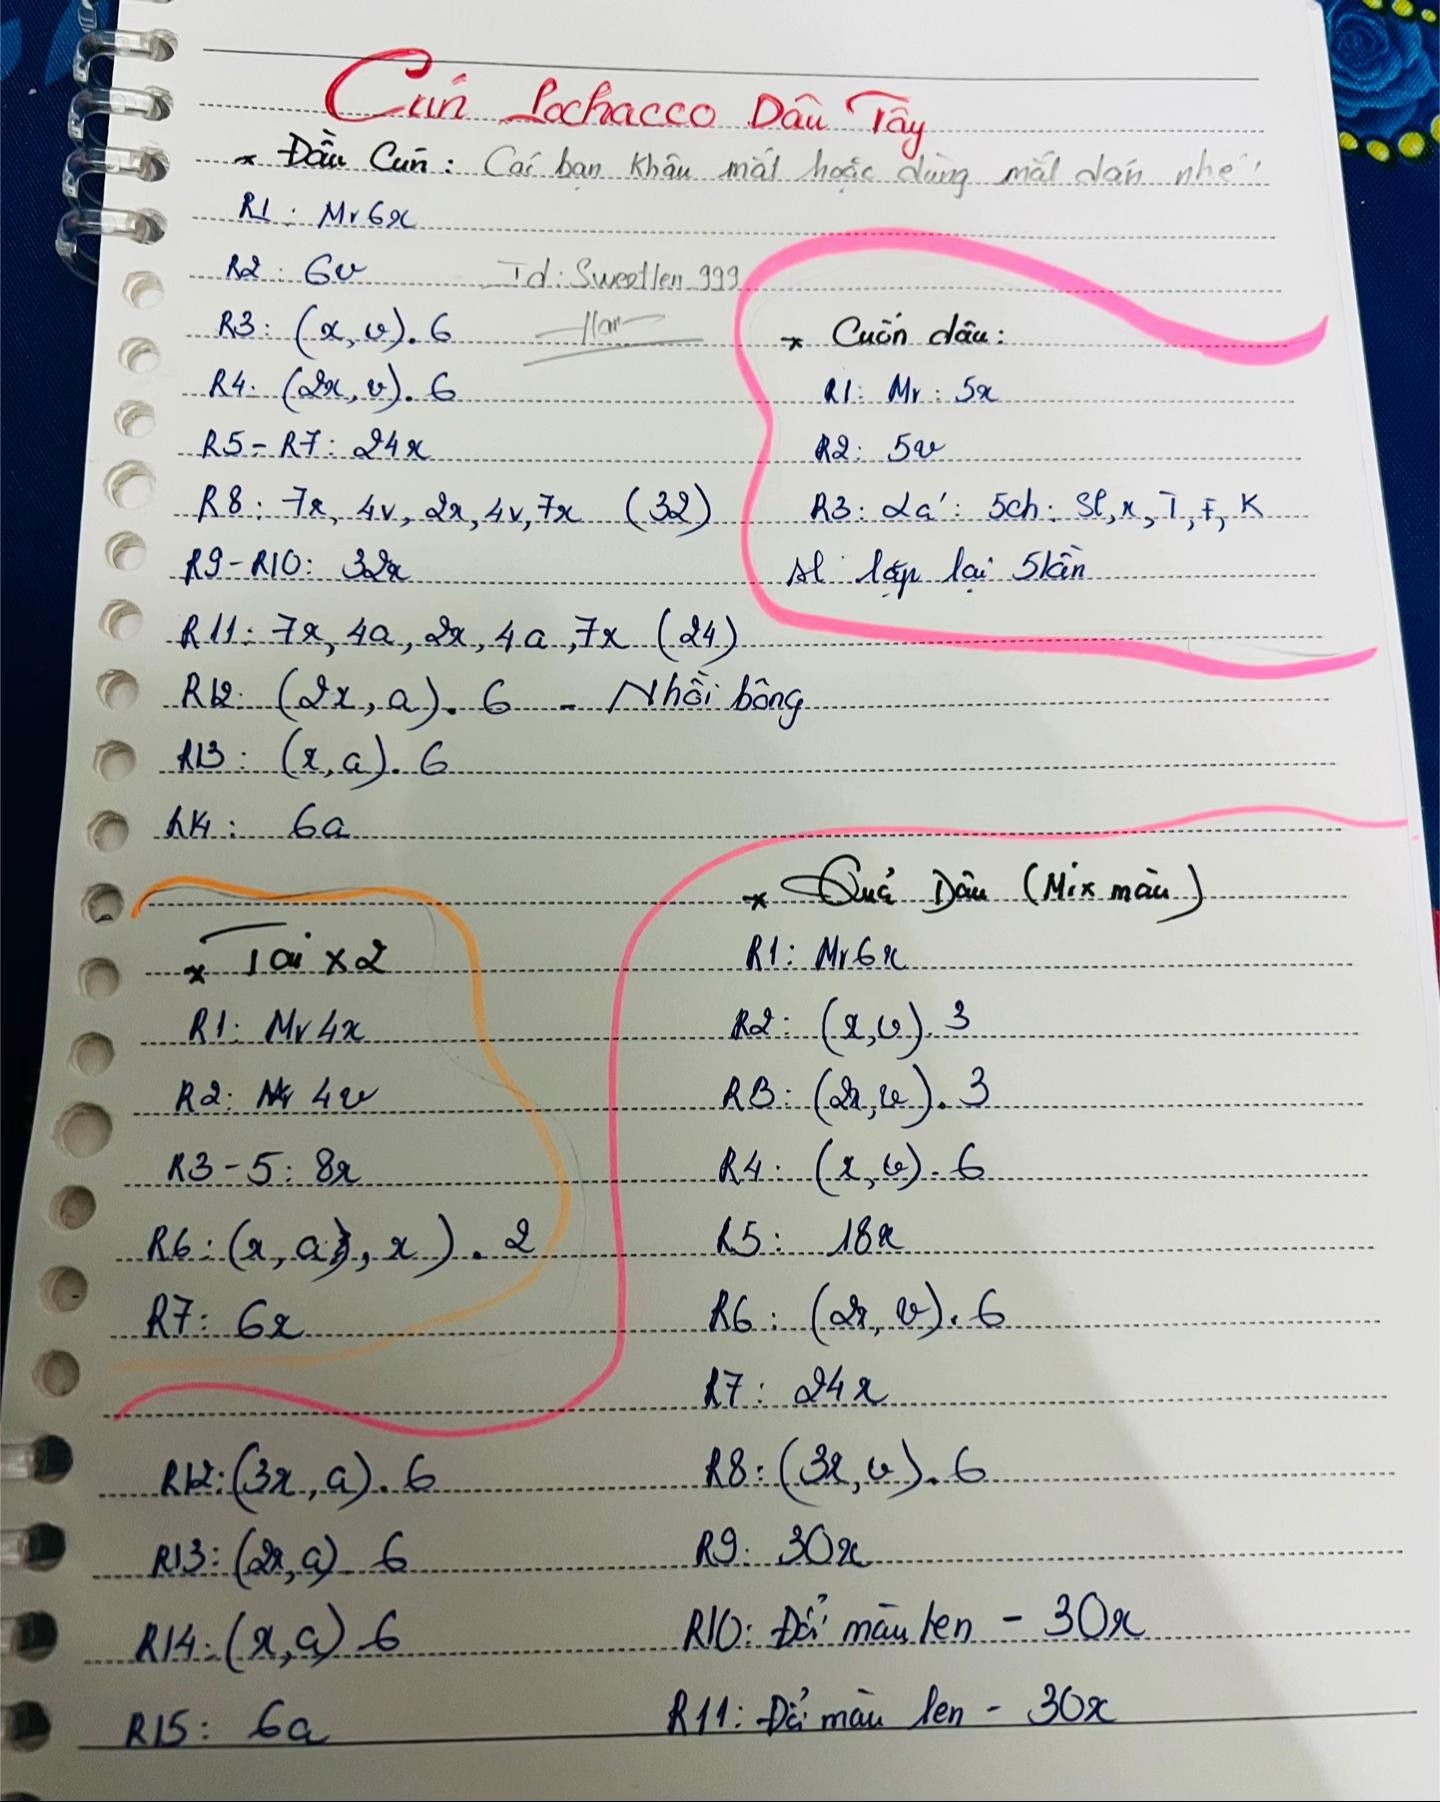 Cún Pochacco Dâu Tây
* Đầu Cún: Các bạn khâu mắt hoặc dùng mắt dán nhé
R1: Mr6x
R2: 6v
Id: Sweetlen_999
R3: (x,v).6
R4: (2x,v).6
R5-R7: 24x
R8: 7x, 4v, 2x, 4v, 7x (32)
R9-R10: 32x
R11: 7x, 4a, 2x, 4a, 7x (24)
R12: (2x, a). 6 - Nhồi bông
R13: (x,a). 6
R14: 6a
* Cuốn dâu:
R1: Mr: 5x
R2: 5v
R3: Lá: 5ch: Sl, x, T, F, K
sl lặp lại 5 lần
* Tai x 2
R1: Mr4x
R2: 4v
R3-5: 8x
R6: (x, a, x). 2
R7: 6x
* Quả Dâu (Mix màu)
R1: Mr6x
R2: (x,v). 3
R3: (2x,v). 3
R4: (x,v). 6
R5: 18x
R6: (2x, v). 6
R7: 24x
R8: (3x,v). 6
R9: 30x
R10: Đổi màu len - 30x
R11: Đổi màu len - 30x
R12: (3x, a). 6
R13: (2x,a) 6
R14: (x,a) 6
R15: 6a